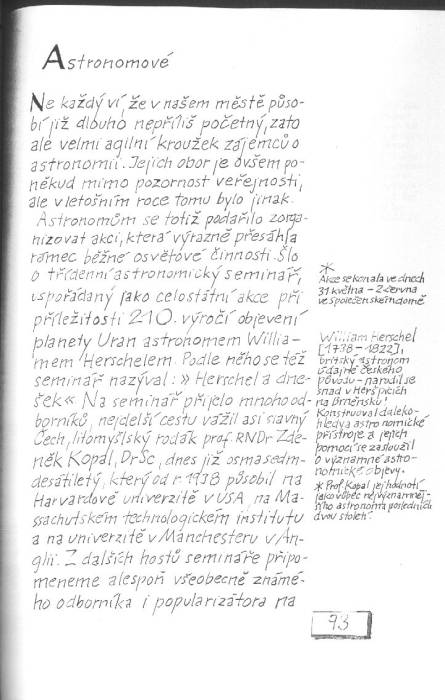 Astronomové
Ne každý ví, že v našem městě půso-
bí již dlouho nepříliš početný, zato
ale velmi agilní kroužek zájemců o
astronomii. Jejich obor je ovšem po-
někud mimo pozornost veřejnosti,
ale v letošním roce tomu bylo jinak.
Astronomům se totiž podařilo zorga-
nizovat akci, která výrazně přesáhla
rámec běžné osvětové činnosti. Šlo
o třídenní astronomický seminář,
uspořádaný jako celostátní akce při
příležitosti 210. výročí objevení
planety Uran astronomem Willia-
mem Herschelem. Podle něho se též
seminář nazýval: » Herschel a dne-
šek « Na seminář přijelo mnoho od-
borníků, nejdelší cestu vážil asi slavný
Čech, litomyšlský rodák prof. RNDr Zde-
něk Kopal, DrSc, dnes již osmasedm-
desátiletý, který od r. 1938 působil na
Harvardově univerzitě v USA, na Ma-
ssachutském technologickém institutu
a na univerzitě v Manchesteru v An-
glii. Z dalších hostů semináře připo-
meneme alespoň všeobecně známé-
ho odborníka i popularizátora na
*
Akce se konala ve dnech
31. května – 2. června
ve společenském domě
William Herschel
[1738 – 1822],
britský astronom
údajně českého
původu – narodil se
snad v Heršpicích
na Brněnsku!
Konstruoval daleko-
hledy a astronomické
přístroje a jejich
pomocí se zasloužil
o významné astro-
nomické objevy.
* Prof. Kopal jej hodnotí
jako vůbec nejvýznamněj-
šího astronoma posledních
dvou století.
93